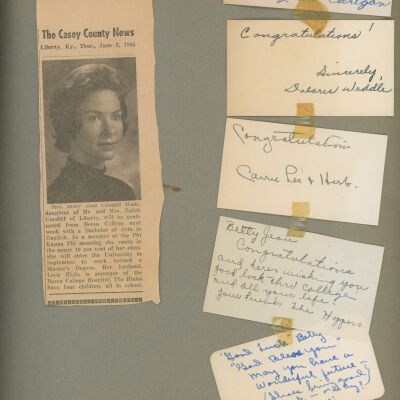 The Casey County News
Liberty, Ky., Thur., June 3, 1965
Mrs. Betty Jean Cundiff Hink,
daughter of Mr and Mrs. Ralph
Cundiff of Liberty, will be grad-
uated from Berea College next
week with a Bachelor of Arts in
English. As a member of the Phi
Kappa Phi meaning she ranks in
the upper 10 per cent of her class.
She will enter the University in
September to work toward a
Master's Degree. Her husband,
Leon Hink, is manager of the
Berea College Hospital. The Hinks
have four children, all in school.
Congratulations!
Sincerely,
Dolores Weddle
Congratulations
Carrie Lee & Herb.
Betty Jean
Congratulations
and heres wishing you
good luck thru college
and all your life!
Your friends The Hoppers
"Good Luck" Betty
"God Bless you"
May you have a
Wonderful future-